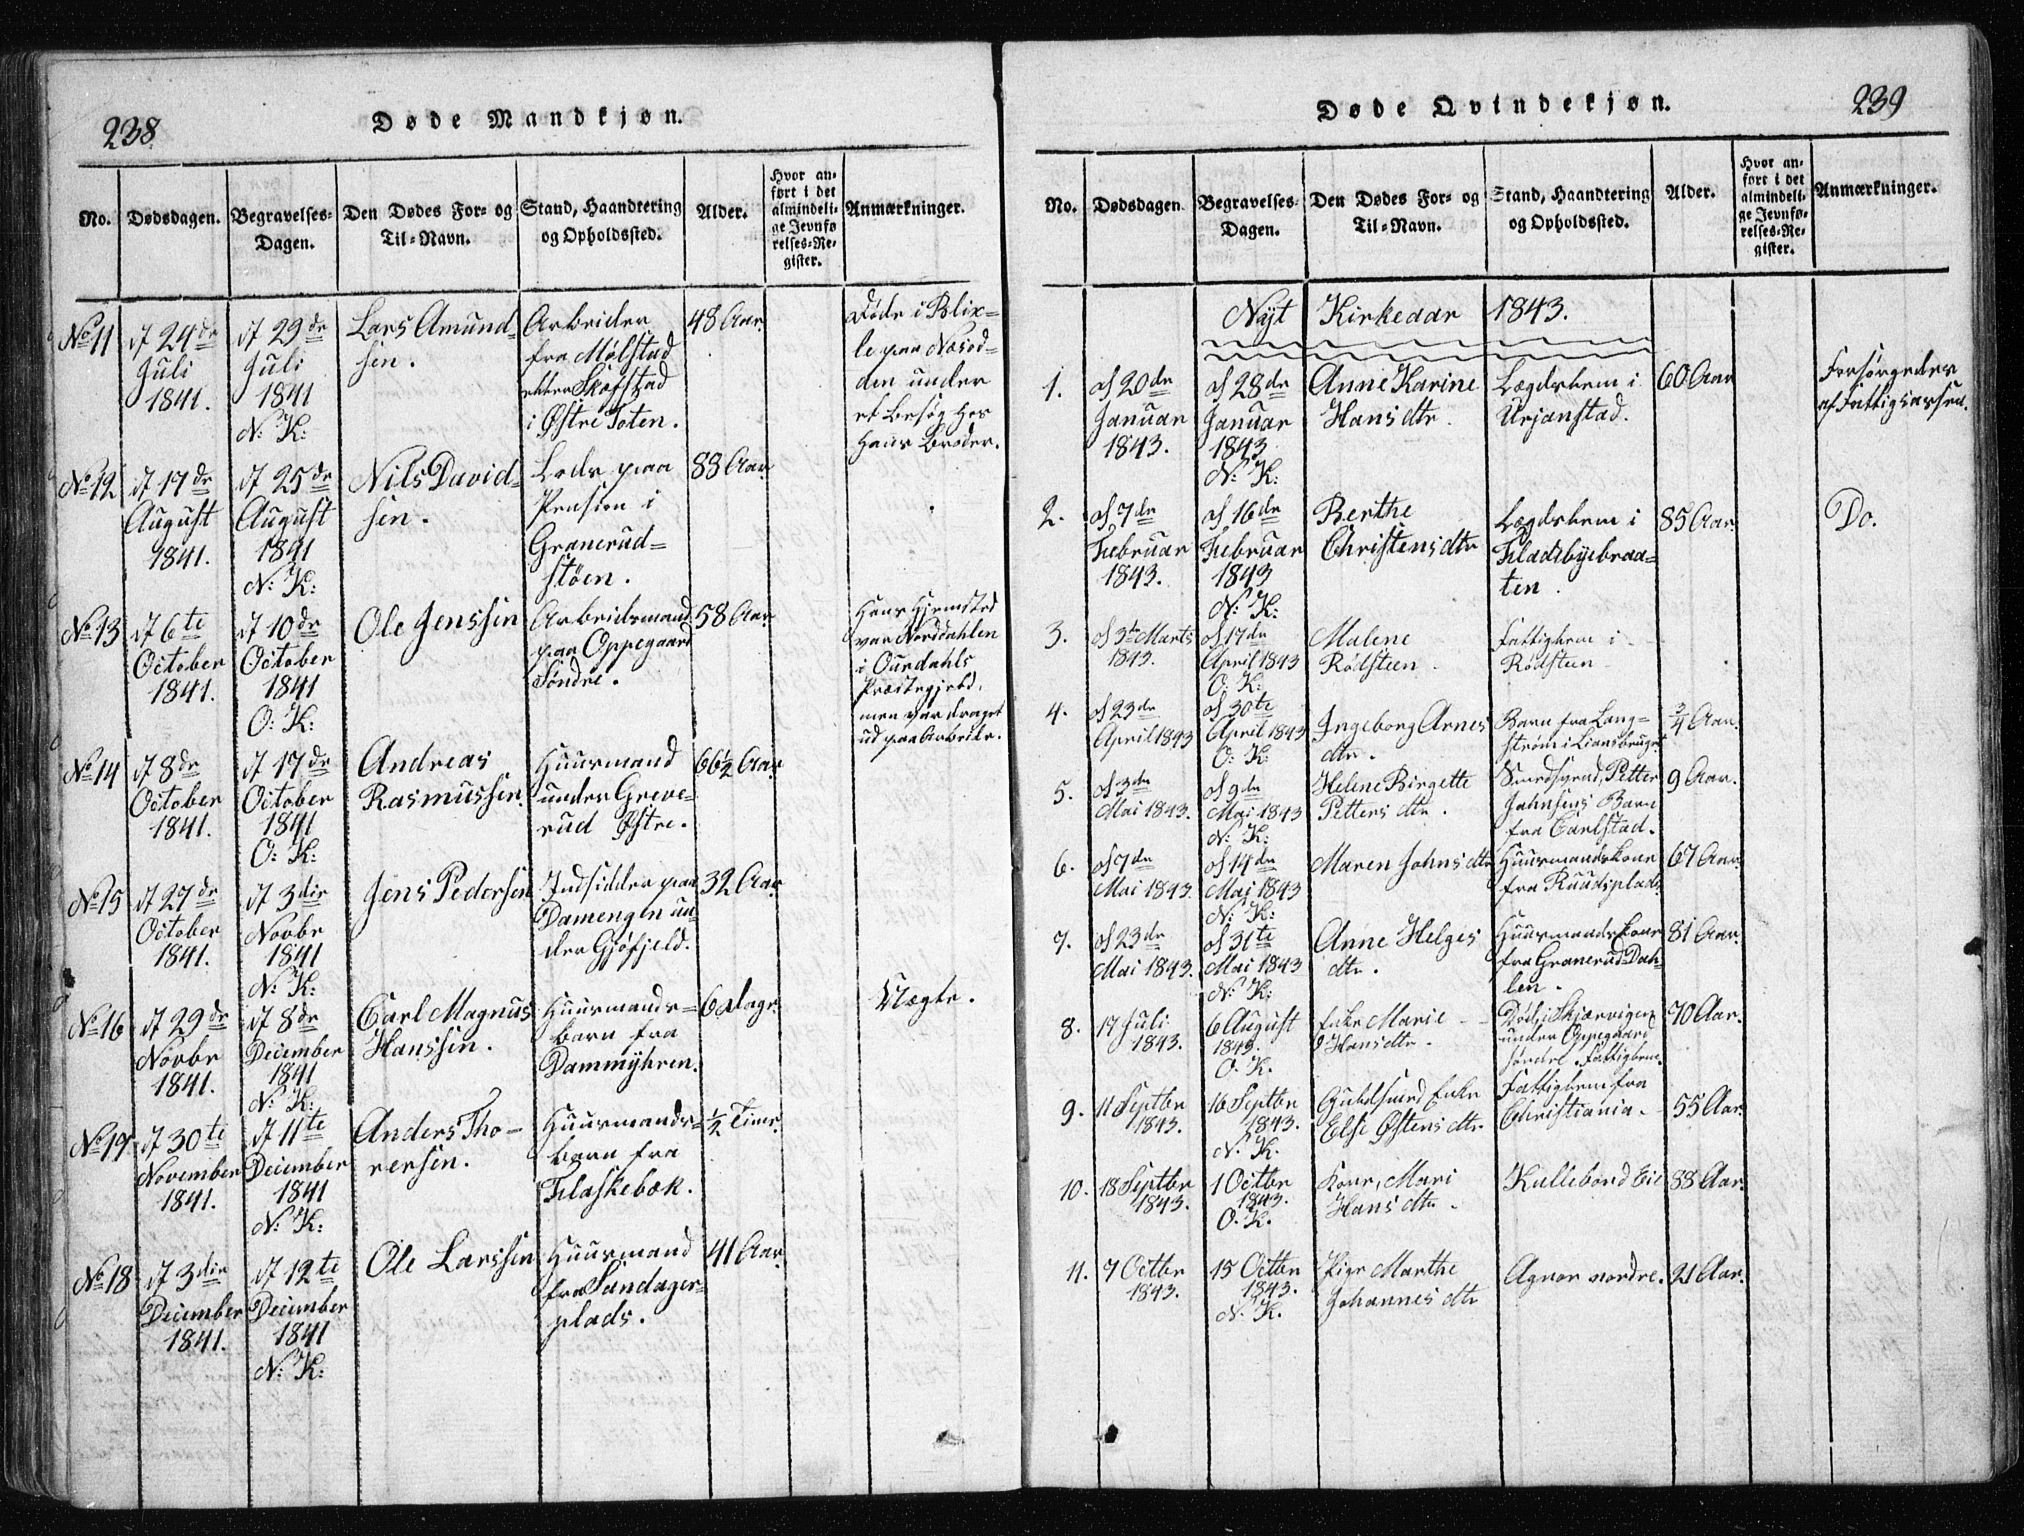 238
Døde Mandkjøn.
No.
Dødsdagen.
Begravelses-
Dagen.
Den Dødes For- og
Til-Navn.
Stand, Haandtering
og Opholdssted.
Alder.
Hvor an-
ført i det
almindeli-
ge Jevnfø
relses-Re-
gister.
Anmærkninger.
No 11
d 24de
Juli
1841.
d 29de
Juli
1841
N: K:
Lars Amund-
sen.
Arbeider
fra Mølstad
eller Skøfstad
i Østre Toten.
48 Aar.
Døde i Blix-
le paa Nesod-
den under
et Besøg hos
hans Broder.
No 12
d 17de
August
1841.
d 25de
August
1841
N: K:
Nils David-
sen.
Lods paa
Pension i
Granerud-
støen.
88 Aar.
No 13
d 6te
October
1841.
d 10de
October
1841
O: K:
Ole Jenssen
Arbeidsmand
paa Oppegaard
Søndre.
58 Aar.
Hans Hjemsted
var Norddahlen
i Ourdahls
Præstegjeld,
men var draget
ud paa Arbeide.
No 14
d 8de
October
1841.
d 17de
October
1841
O: K:
Andreas
Rasmussen.
Huusmand
under Greve-
rud Østre.
66½ Aar.
No 15
d 27de
October
1841.
d 3die
Novbr
1841
N: K:
Jens Pedersen
Indsidder paa
Damengen un-
der Gjøfjeld.
32 Aar.
No 16
d 29de
Novbr
1841.
d 8de
December
1841
N: K:
Carl Magnus
Hanssen.
Huusmands-
barn fra
Dammyhren.
6 Dage.
Uægte.
No 17
d 30te
November
1841.
d 11te
December
1841
N: K:
Anders Tho-
rersen.
Huusmands-
barn fra
Flaskebæk.
½ Time.
No 18
d 3die
December
1841.
d 12te
December
1841
N: K:
Ole Larssen
Huusmand
fra Sundager-
plads.
41 Aar.
Døde Qvindekjøn.
239
No.
Dødsdagen.
Begravelses-
Dagen.
Den Dødes For- og
Til-Navn.
Stand, Haandtering
og Opholdssted.
Alder.
Hvor an-
ført i det
almindeli-
ge Jevnfø-
relses-Re-
gister.
Anmærkninger.
Nyt Kirkeaar 1843.
1.
d 20de
Januar
1843.
d 28de
Januar
1843
N: K:
Anne Karine
Hansdtr.
Lægdslem i
Urjanstad.
60 Aar
Forsørgedes
af Fattigkassen.
2.
d 7de
Februar
1843.
d 16de
Februar
1843
N: K:
Berthe
Christensdtr
Lægdslem i
Fladebyebraa-
ten.
85 Aar.
Do.
3.
d 3de Marts
1843.
d 17de
April 1843
O: K:
Malene
Rødsteen.
Fattiglem i
Rødsteen
4.
d 23de
April 1843
d 30te
April 1843
O: K:
Ingeborg Arnes
dtr.
Barn fra Lang-
strøm i Liansbruget
¾ Aar.
5.
d 3de
Mai 1843.
d 9de
Mai 1843
N: K:
Helene Birgette
Pettersdtr.
Smedsvend, Petter
Johnsens Barn
fra Carlstad.
9 Aar.
6.
d 7de
Mai 1843.
d 14de
Mai 1843
N: K:
Maren Johnsdtr
Huusmandskone
fra Ruudsplads
67 Aar.
7.
d 23de
Mai 1843.
d 31te
Mai 1843
N: K:
Anne Helges
dtr.
Huusmandskone
fra Granerud-Dah-
len.
81 Aar.
8.
17 Juli
1843.
6 August
1843.
O. K.
Enke Marie
Hansdtr.
Død i Skjærvigen
under Oppegaard
søndre. Fattiglem.
70 Aar.
9.
11 Septbr
1843.
16 Septbr
1843.
N. K.
Guldsmed Enke
Else Østensdtr.
Fattiglem fra
Christiania.
55 Aar.
10.
18 Septbr
1843.
1 Octbr
1843.
O. K.
Kone, Mari
Hansdtr.
Kullebond Eie
88 Aar.
11.
7 Octbr
1843.
15 Octbr
1843.
N. K.
Pige Marthe
Johannesdtr
Agnor nordre.
21 Aar.